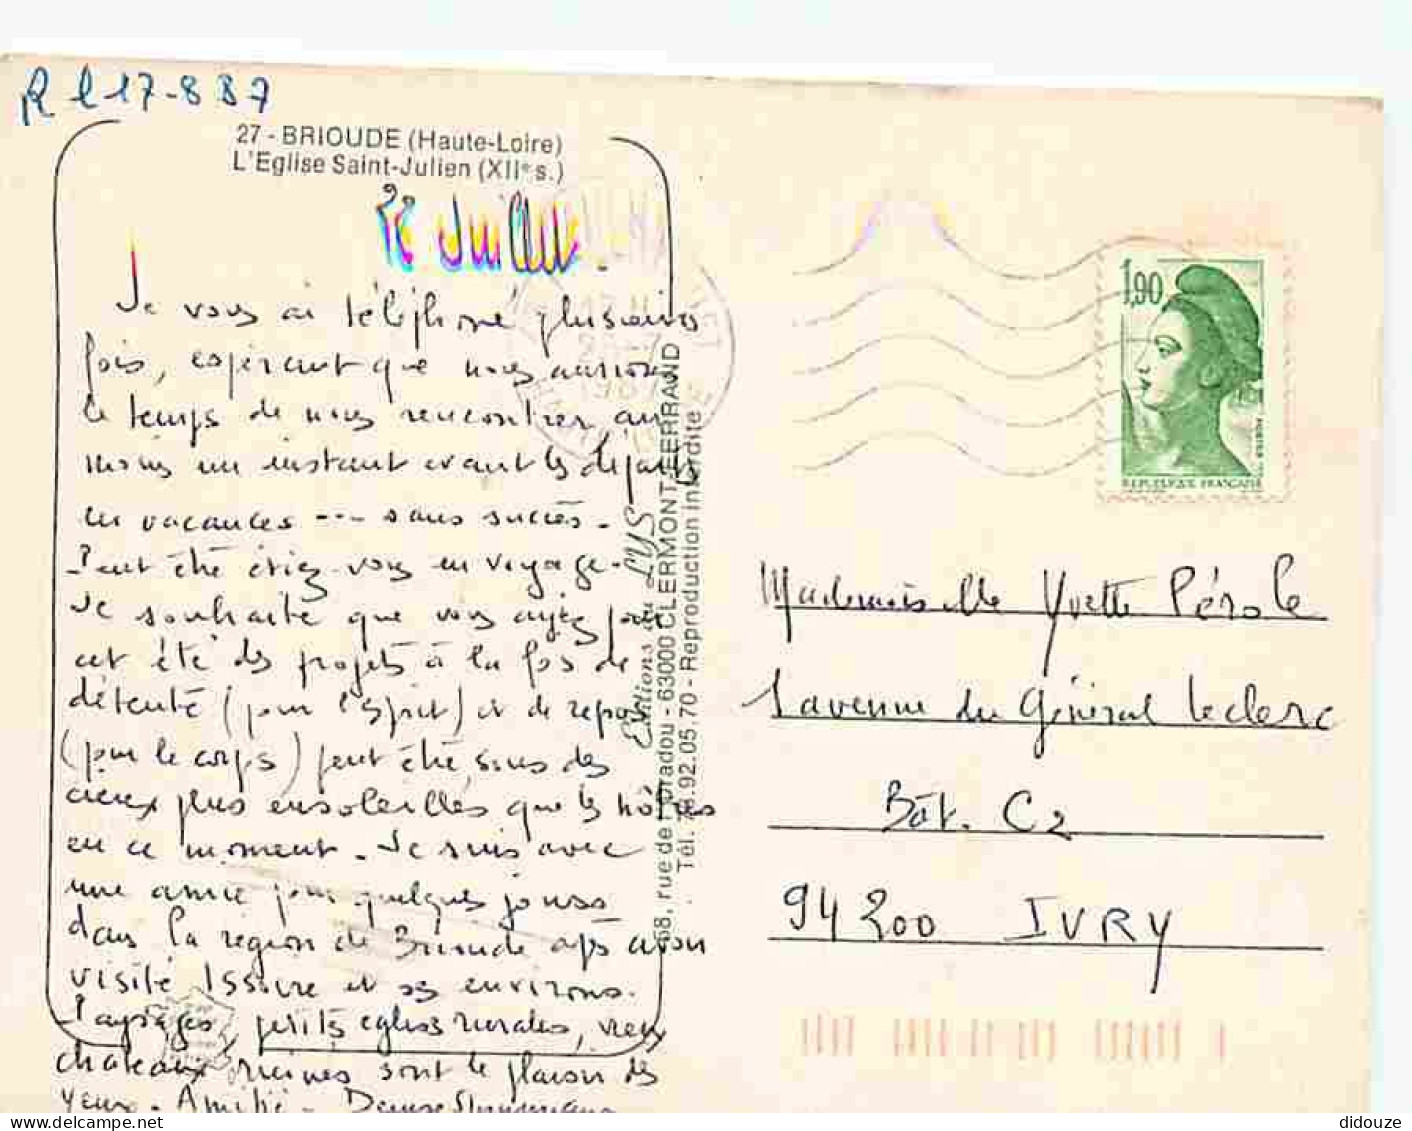 R l 17-8 87
27 - BRIOUDE (Haute-Loire)
L'Eglise Saint-Julien (XIIe s.)
28 Juillet.
Je vous ai téléphoné plusieurs
fois, espérant que nous aurions
le temps de nous rencontrer au
moins un instant avant les départs
en vacances --- sans succès.
Peut être étiez-vous en voyage.
Je souhaite que vous ayiez pour
cet été des projets à la fois de
détente (pour l'esprit) et de repos
(pour le corps) peut être, sous des
cieux plus ensoleillés que les nôtres
en ce moment. Je suis avec
une amie pour quelques jours
dans la région de Brioude après avoir
visité Issoire et ses environs.
Paysages, petits églises rurales, vieux
chateaux, ruines sont le plaisir des
yeux. Amitié - Denise
Editions du LYS
68, rue de l'Oradou - 63000 CLERMONT-FERRAND
Tél. 73.92.05.70 - Reproduction interdite
1987
1,90
POSTES
REPUBLIQUE FRANÇAISE
Mademoiselle Yvette Pérole
1 avenue du Général Leclerc
Bât. C2
94200 IVRY
didouze